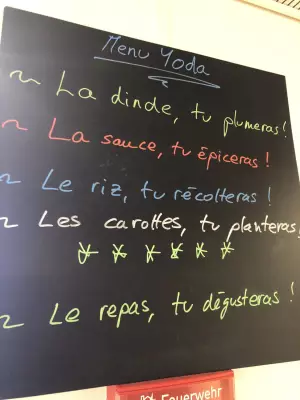 Menu Yoda
~ La dinde, tu plumeras!
~ La sauce, tu épiceras!
~ Le riz, tu récolteras!
~ Les carottes, tu planteras!
~ Le repas, tu dégusteras!
Feuerwehr